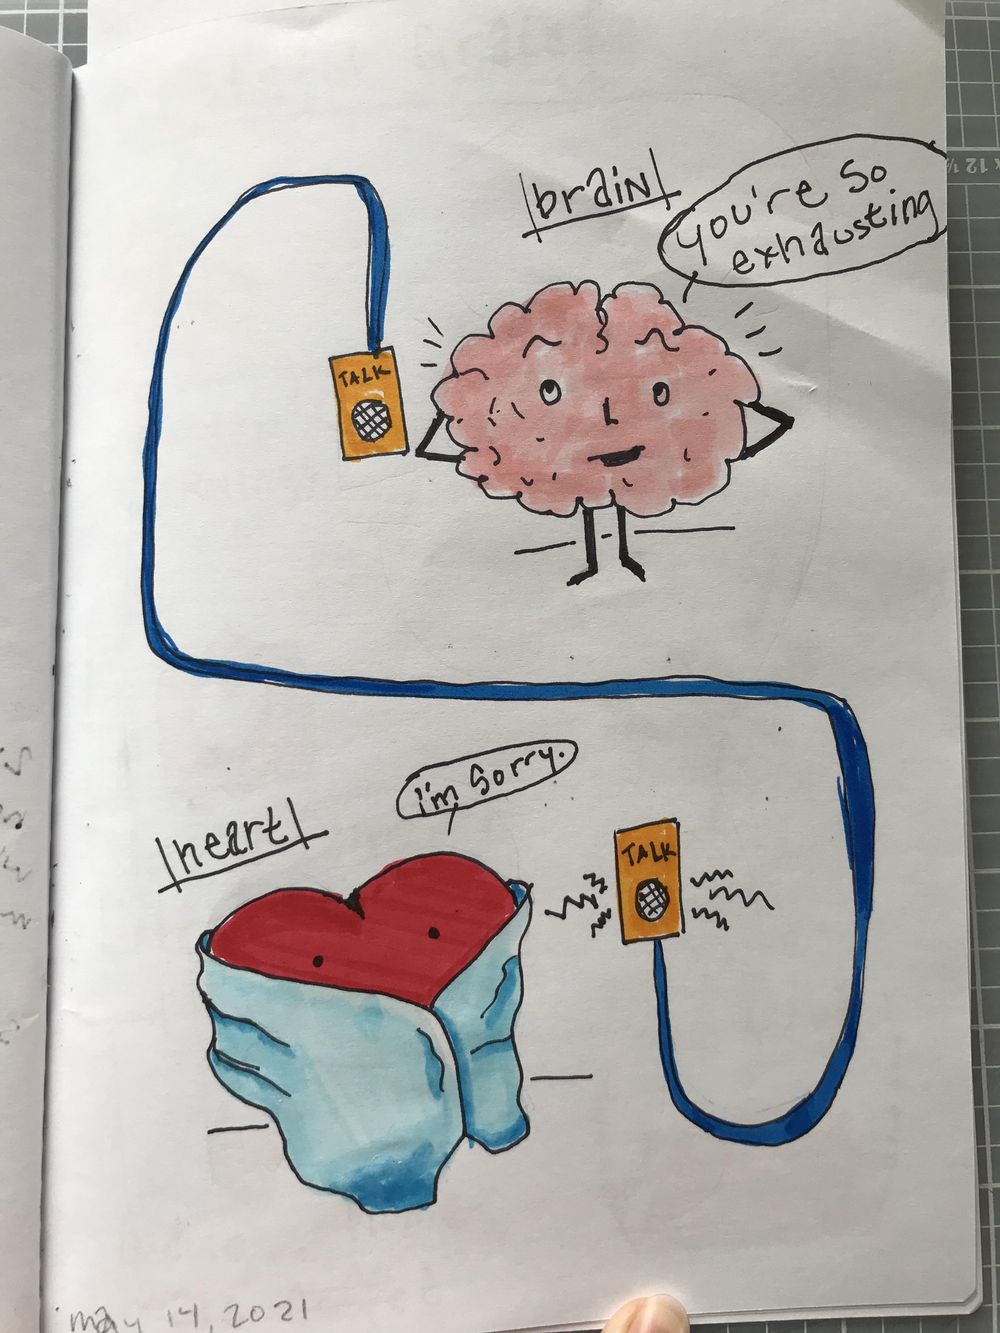 brain
you're so
exhausting
TALK
i'm sorry.
heart
TALK
may 14, 2021